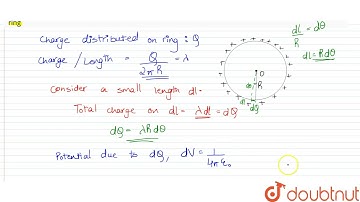 ring
Charge distributed on ring : Q
Charge / Length = Q / 2πR = λ
Consider a small length dl-
Total charge on dl = λdl = dQ
dQ = λRdθ
Potential due to dQ, dV = 1 / 4πε₀
dl / R = dθ
dl = Rdθ
O
R
dθ
dl
dQ
doubtnut